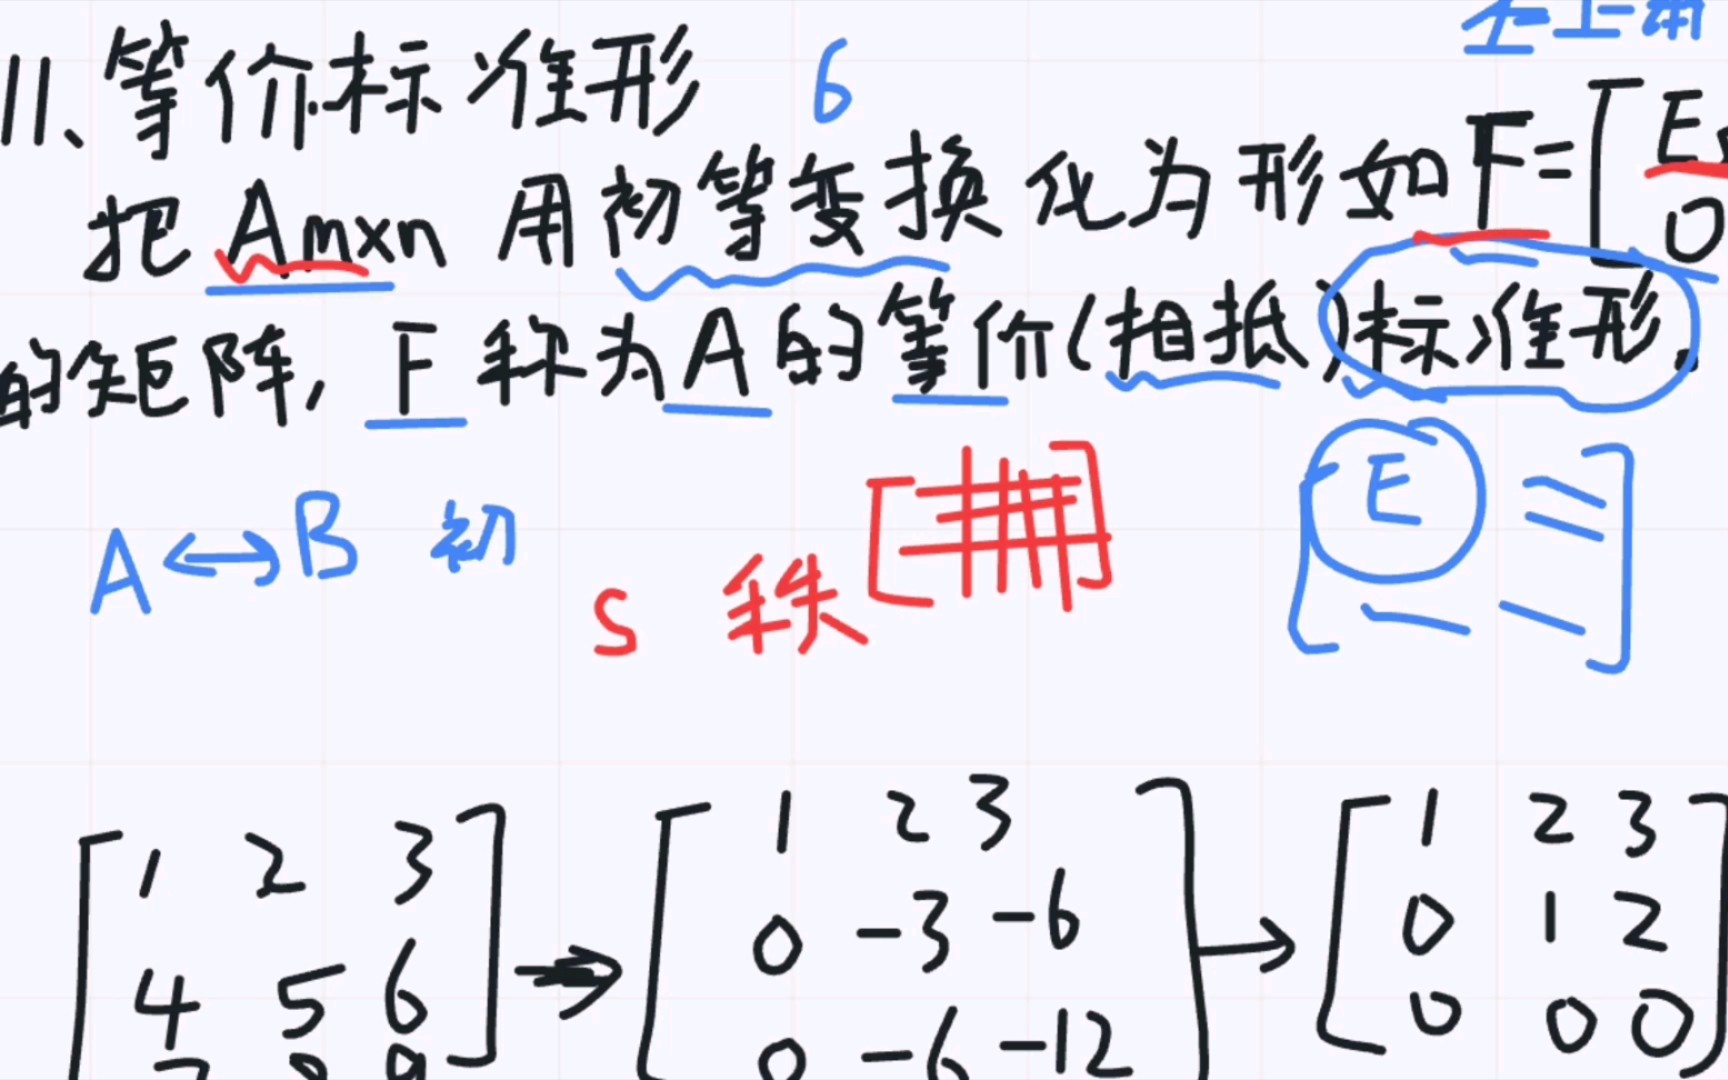 11、等价标准形 6
把 Am×n 用初等变换化为形如 F=[E
0
的矩阵, F 称为A的等价(相抵)标准形.
A↔B 初
S 秩
E
[1 2 3] [1 2 3] [1 2 3]
4 5 6 → 0 -3 -6 → 0 1 2
0 -6 -12 0 0 0